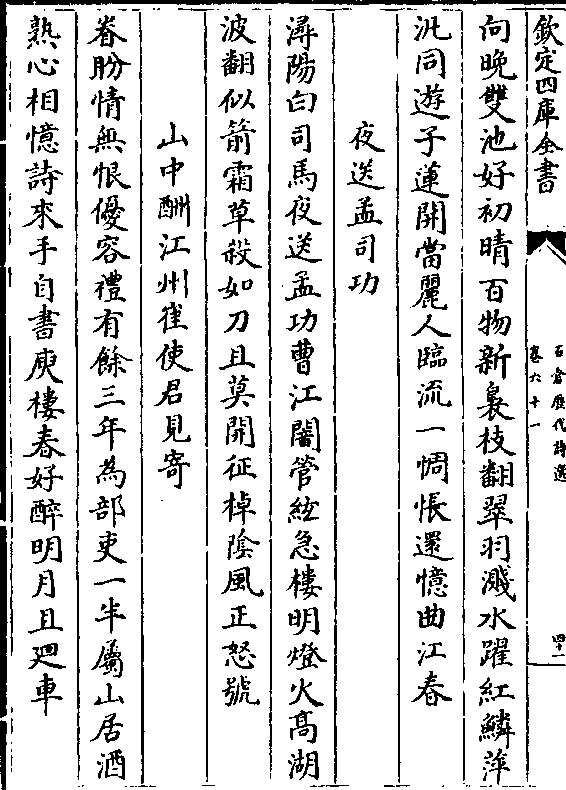 欽定四庫全書
石倉歷代詩選
卷六十一
四十一
向晚雙池好初晴百物新裊枝翻翠羽濺水躍紅鱗萍
汎同遊子蓮開當麗人臨流一惆悵還憶曲江春
夜送孟司功
潯陽白司馬夜送孟功曹江闇管絃急樓明燈火髙湖
波翻似箭霜草殺如刀且莫開征棹陰風正怒號
山中酬江州崔使君見寄
眷肦情無恨優容禮有餘三年為部吏一半屬山居酒
熟心相憶詩來手自書庾樓春好醉明月且廻車